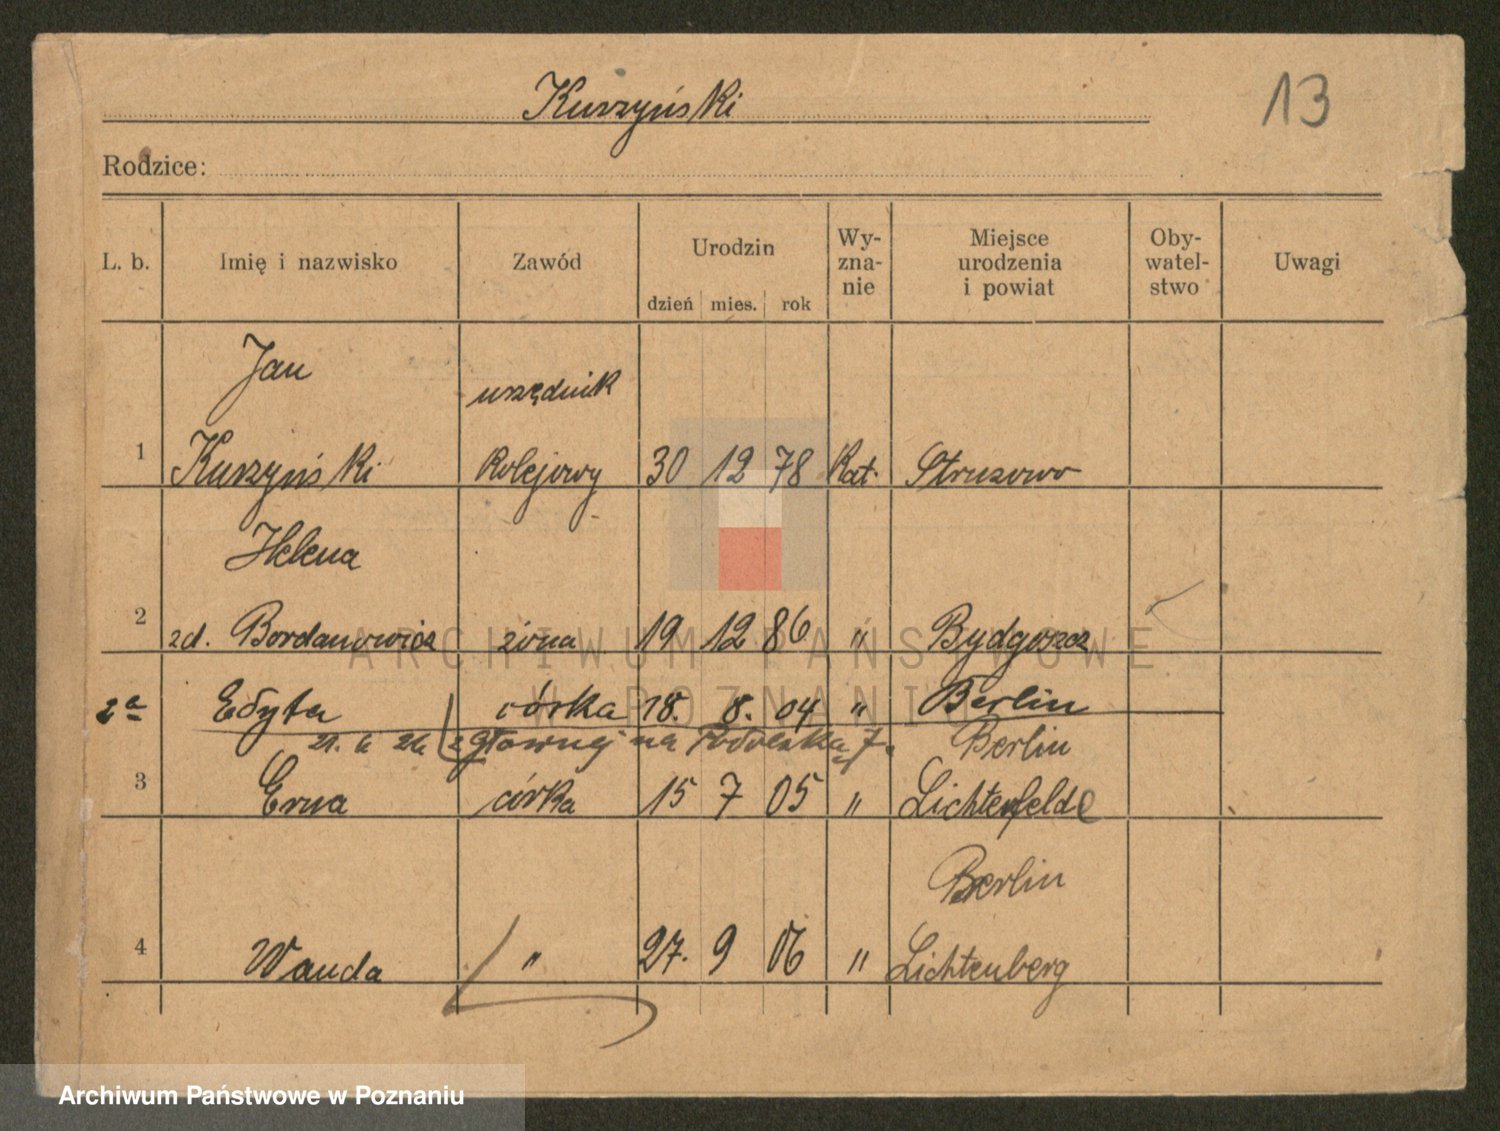 Kurzyński
13
Rodzice:
L. b. Imię i nazwisko Zawód Urodzin dzień mies. rok Wy-zna-nie Miejsce urodzenia i powiat Oby-watel-stwo Uwagi
Jan urzędnik
1 Kurzyński kolejowy 30 12 78 kat. Struzowo
Helena
2 zd. Bordanowicz żona 19 12 86 " Bydgoszcz
2a Edyta córka 18. 8. 04 " Berlin
21. 6 26 z głównej na Podolską 7. Berlin
3 Erna córka 15 7 05 " Lichtenfelde
Berlin
4 Wanda " 27. 9 06 " Lichtenberg
ARCHIWUM PAŃSTWOWE
W POZNANIU
Archiwum Państwowe w Poznaniu